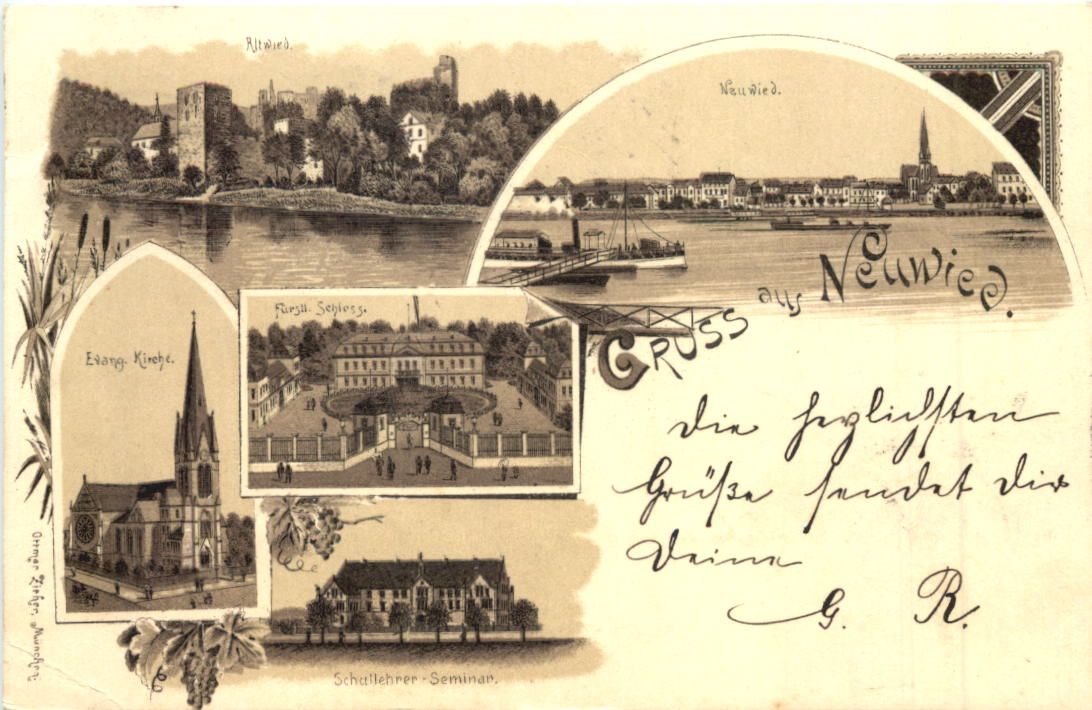 Altwied.
Neuwied.
Gruss aus Neuwied.
Evang. Kirche.
Fürstl. Schloss.
Schullehrer-Seminar.
Ottmar Zieher, München.
Die herzlichsten
Grüße sendet Dir
Deine
G. R.